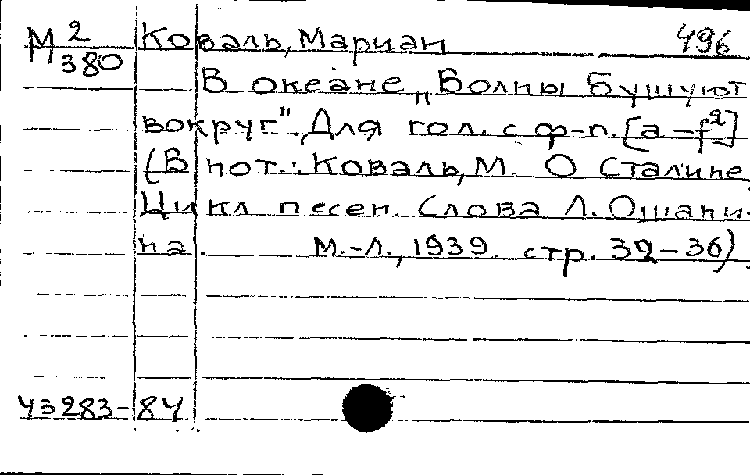 М 2/380 Коваль, Мариан 496
В океане „Волны бушуют
вокруг". Для гол. с ф-п. [a – f²]
(В нот.: Коваль, М. О Сталине.
Цикл песен. Слова Л. Ошани-
на. М.-Л., 1939. стр. 32–36)
43283-84